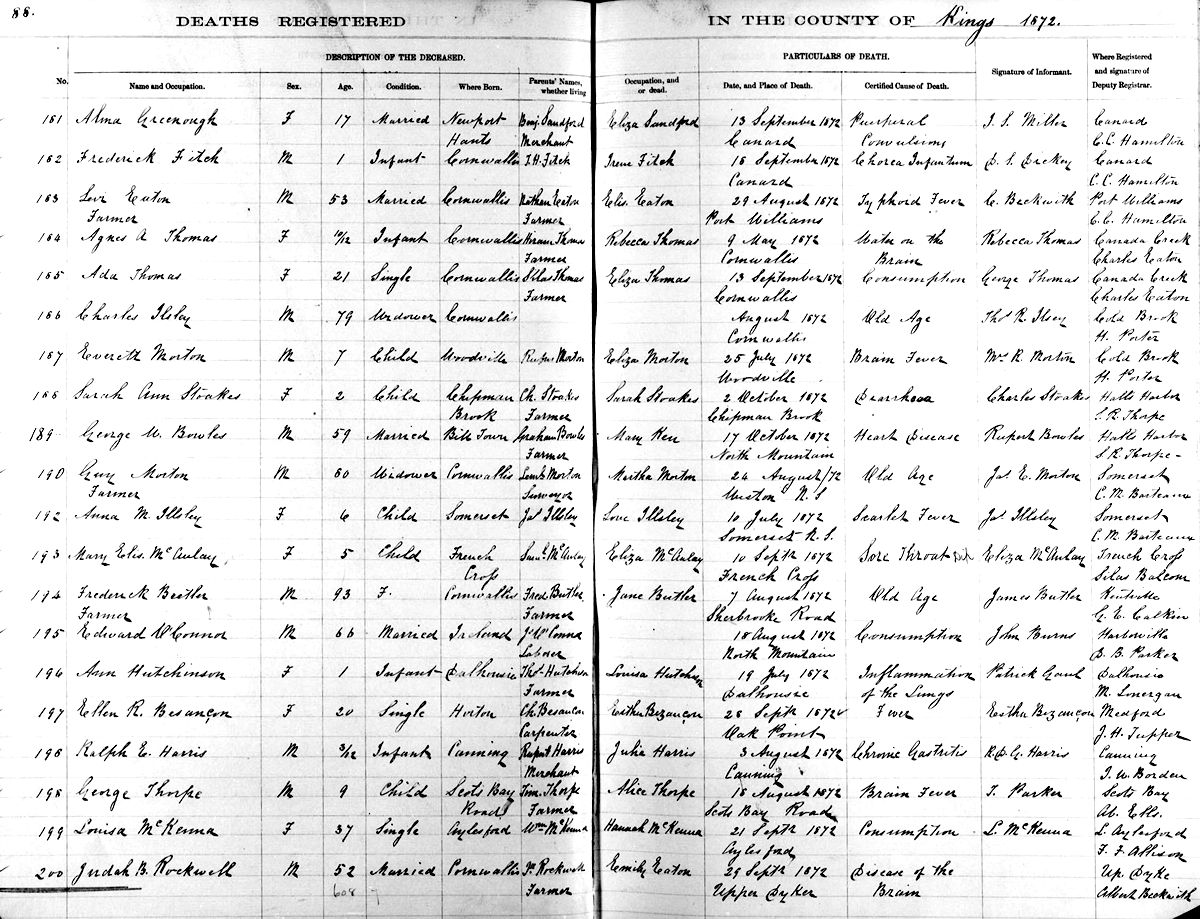 88.
DEATHS REGISTERED IN THE COUNTY OF Kings 1872.
DESCRIPTION OF THE DECEASED. PARTICULARS OF DEATH.
No. Name and Occupation. Sex. Age. Condition. Where Born. Parents' Names, whether living Occupation, and or dead. Date, and Place of Death. Certified Cause of Death. Signature of Informant. Where Registered and signature of Deputy Registrar.
181 Alma Greenough F 17 Married Newport Benj. Sandford Eliza Sandford 13 September 1872 Puerperal J. S. Miller Canard
Hants Merchant Canard Convulsions C.C. Hamilton
182 Frederick Fitch M 1 Infant Cornwallis J. H. Fitch Irene Fitch 16 September 1872 Cholera Infantum D. S. Dickey Canard
Canard C. C. Hamilton
183 Levi Eaton M 53 Married Cornwallis Nathan Eaton Elis. Eaton 29 August 1872 Typhoid Fever C. Beckwith Port Williams
Farmer Farmer Port Williams C. C. Hamilton
184 Agnes A Thomas F 10/12 Infant Cornwallis Hiram Thomas Rebecca Thomas 9 May 1872 Water on the Rebecca Thomas Canada Creek
Farmer Cornwallis Brain Charles Eaton
185 Ada Thomas F 21 Single Cornwallis Silas Thomas Eliza Thomas 13 September 1872 Consumption George Thomas Canada Creek
Farmer Cornwallis Charles Eaton
186 Charles Ilsley M 79 Widower Cornwallis August 1872 Old Age Thos R. Ilsey Cold Brook
Cornwallis H. Porter
187 Everett Morton M 7 Child Woodville Rufus Morton Eliza Morton 25 July 1872 Brain Fever Mrs R. Morton Cold Brook
Woodville H. Porter
188 Sarah Ann Stoakes F 2 Child Chipman Ch. Stoakes Sarah Stoakes 2 October 1872 Diarrhoea Charles Stoakes Halls Harbor
Brook Farmer Chipman Brook S. R. Thorpe
189 George W. Bowles M 59 Married Bill Town Graham Bowles Mary Ken 17 October 1872 Heart Disease Rupert Bowles Halls Harbor
Farmer North Mountain S. R. Thorpe
190 Guy Morton M 80 Widower Cornwallis Leml Morton Martha Morton 24 August /72 Old Age Jas. E. Morton Somerset
Farmer Surveyor Weston N. S C. M. Barteaux
192 Anna M. Illsley F 6 Child Somerset Jas Illsley Love Illsley 10 July 1872 Scarlet Fever Jas. Illsley Somerset
Somerset N. S. C. M. Barteaux
193 Mary Elis. McAulay F 5 Child French Saml. McAulay Eliza McAulay 10 Septh 1872 Sore Throat Eliza McAulay French Cross
Cross French Cross Silas Balcom
194 Frederick Beetler M 93 F. Cornwallis Fred Butler Jane Butler 7 August 1872 Old Age James Butler Kentville
Farmer Farmer Sherbrooke Road G. E. Calkin
195 Edward O'Connor M 66 Married Ireland J. O'Connor 18 August 1872 Consumption John Burns Harborville
Laborer North Mountain D. B. Parker
196 Ann Hutchinson F 1 Infant Dalhousie Thos. Hutchison Louisa Hutchison 19 July 1872 Inflammation Patrick Gaul Dalhousie
Farmer Dalhousie of the Lungs M. Lonergan
197 Ellen R. Besançon F 20 Single Horton Ch. Besancon Esther Bezancon 28 Septh 1872 Fever Eestha Bezancon Medford
Carpenter Oak Point J. H. Tupper
198 Ralph E. Harris M 3/12 Infant Canning Rupert Harris Julia Harris 3 August 1872 Chronic Gastritis R. D. G. Harris Canning
Merchant Canning J. W. Borden
198 George Thorpe M 9 Child Scots Bay Tim. Thorpe Alice Thorpe 18 August 1872 Brain Fever J. Parker Scots Bay
Road Farmer Scots Bay Road Ab. Ells.
199 Louisa McKenna F 37 Single Aylesford Wm McKenna Hannah McKenna 21 Septh 1872 Consumption L. McKenna L. Aylesford
Aylesford F. F. Allison
200 Judah B. Rockwell M 52 Married Cornwallis Jn. Rockwell Emily Eaton 29 Septh 1872 Disease of the Up. Dyke
608 Farmer Upper Dyker Brain Albert Beckwith